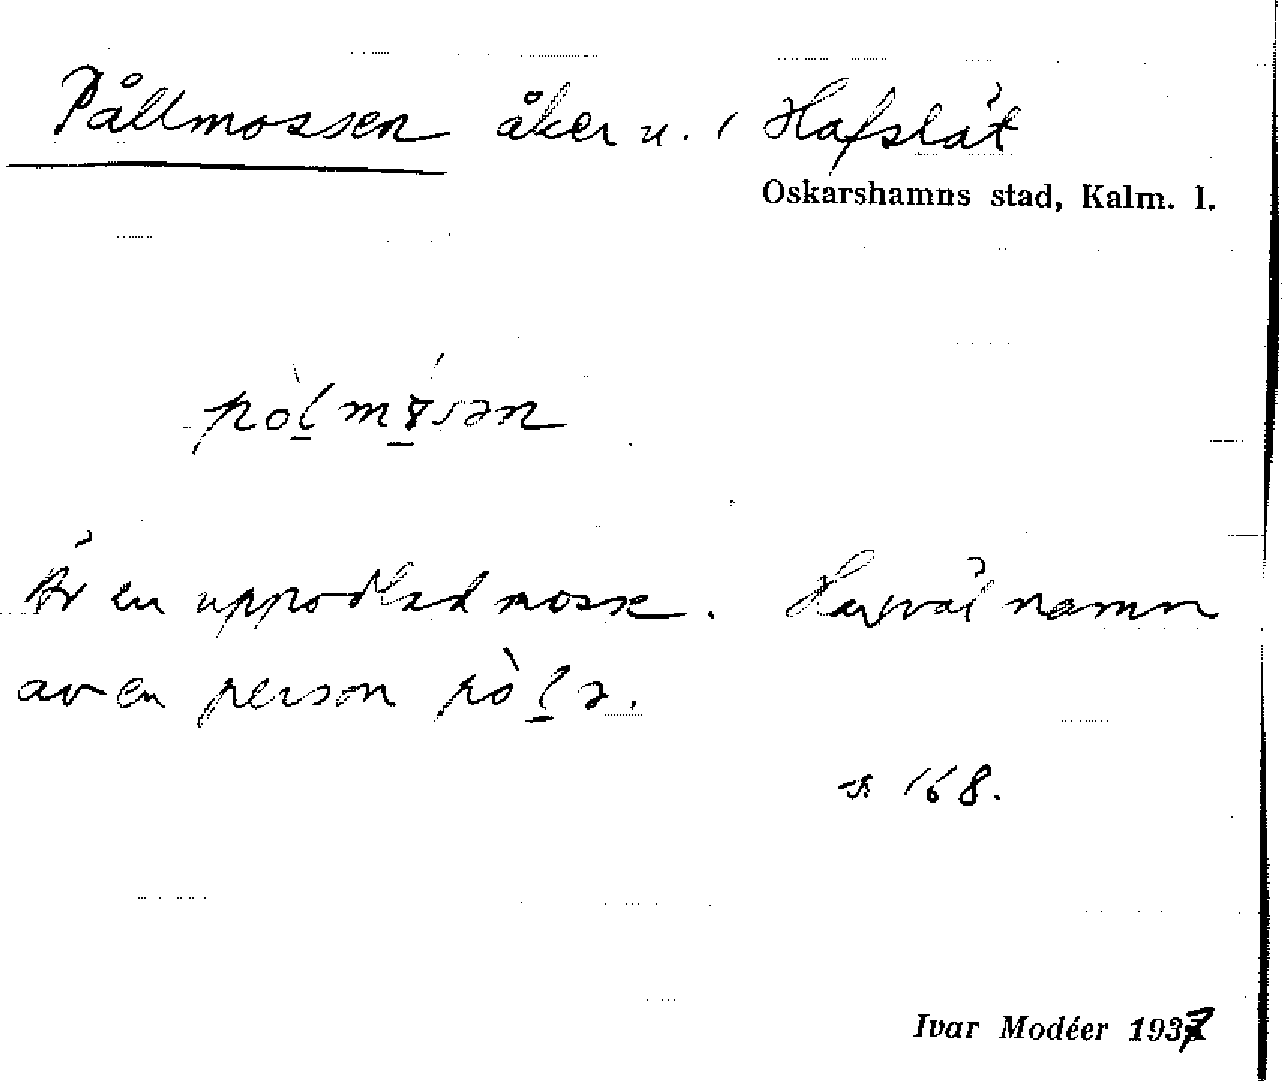 Pållmossen åker u. i Hafslät
Oskarshamns stad, Kalm. l.
pòlmɤsən
Är en uppodlad mosse. Har väl namn
av en person pòlə.
s. 168.
Ivar Modéer 1937